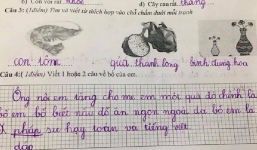 b) Con voi rất khoẻ d) Cây cau rất thẳng
Câu 3: (1điểm) Tìm và viết từ thích hợp vào chỗ chấm dưới mỗi tranh
con tôm quả thanh long bình đựng hoa
Câu 4: (1điểm) Viết 1 hoặc 2 câu về bố của em.
Ông nói em rằng cho mẹ em một quà đó chính là
bố em. bố biết nấu đồ ăn ngon ngoài da bố em là
phán sư hay toán và tiếng việt